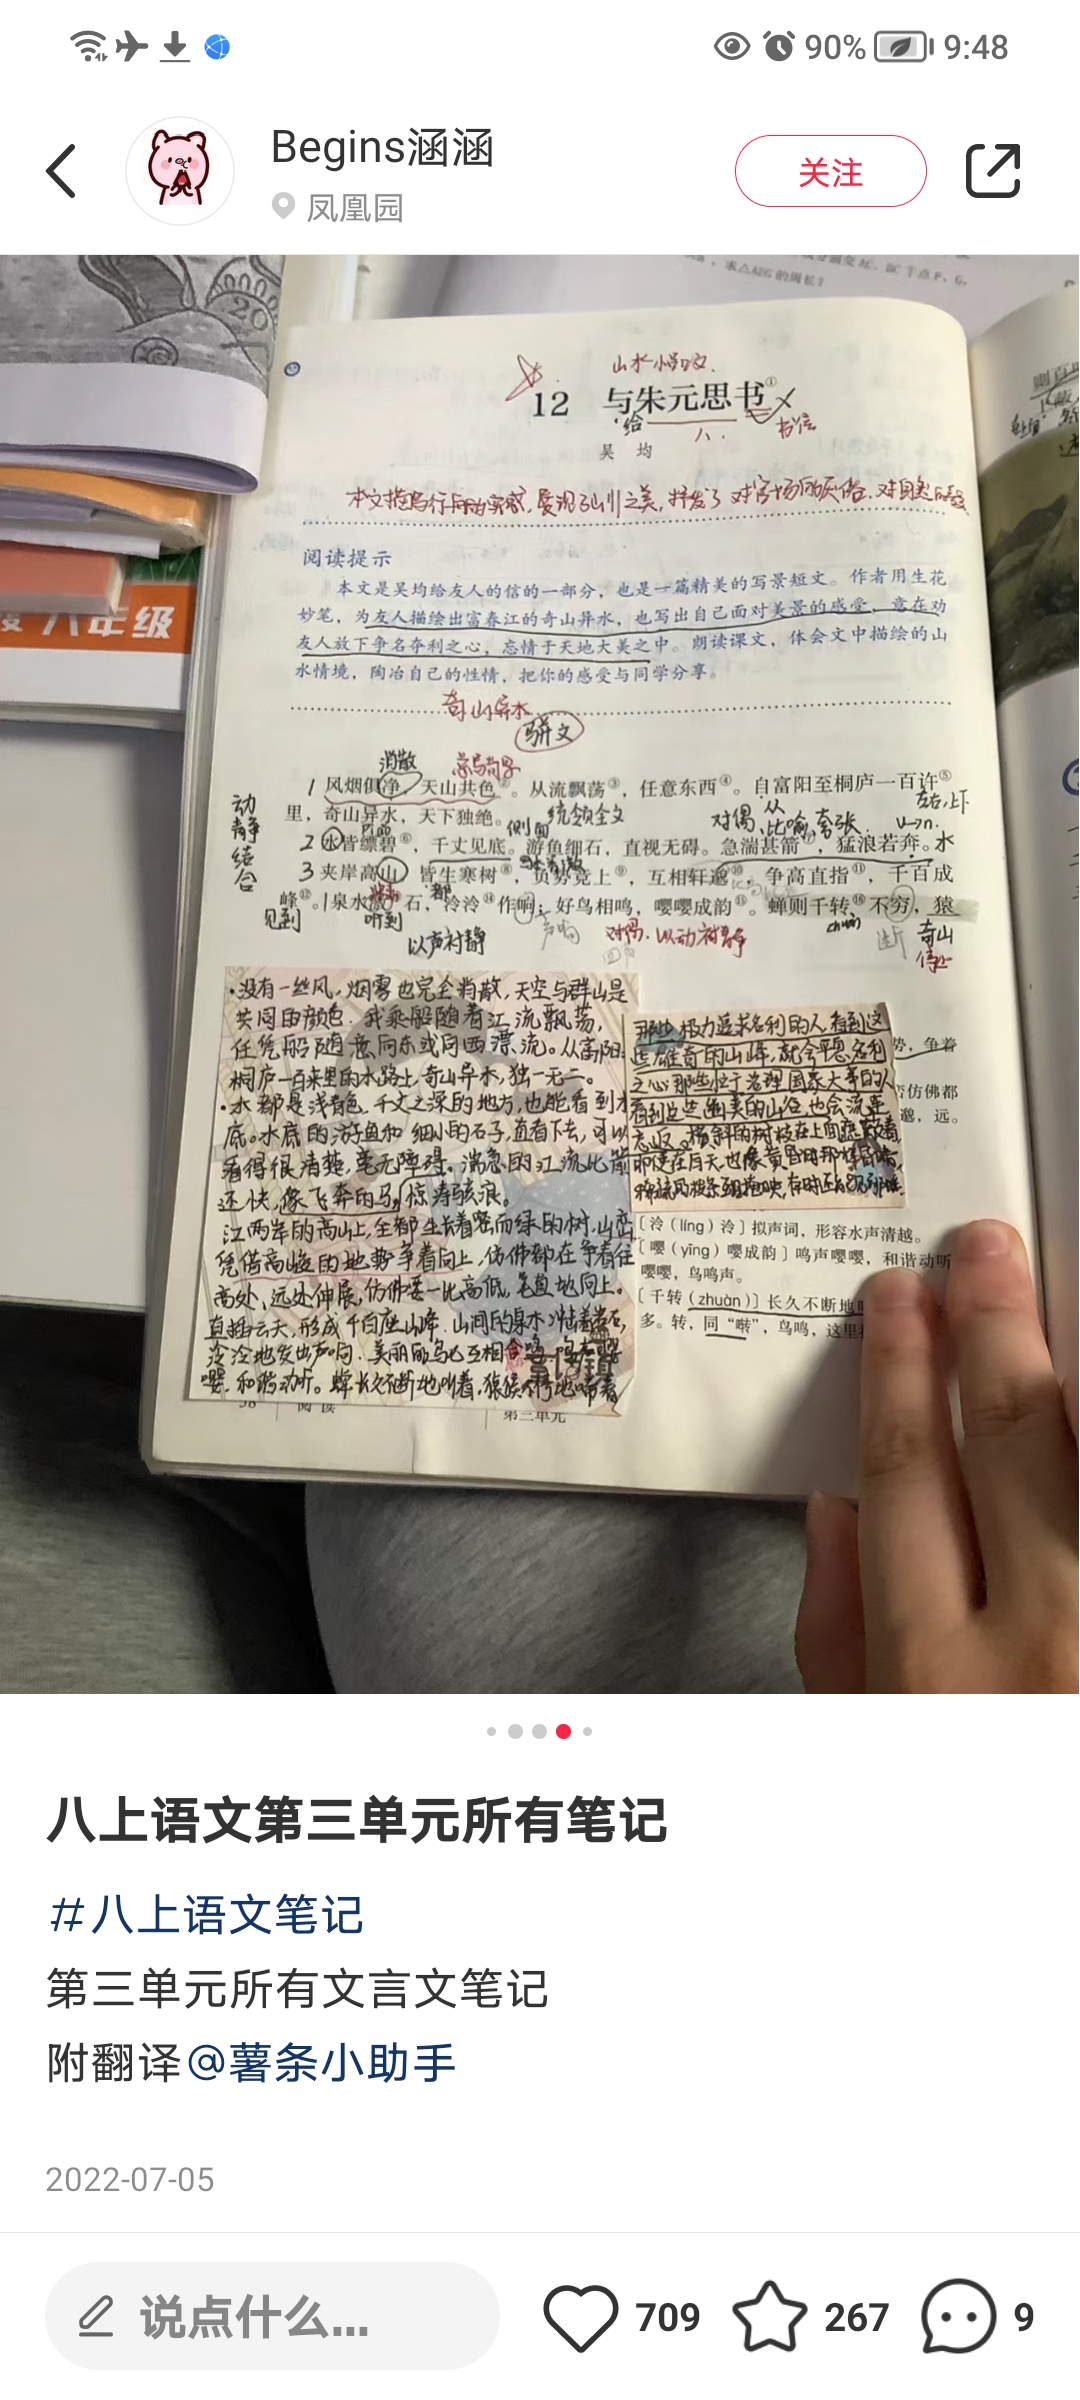 90% 9:48
Begins涵涵
凤凰园
关注
20
八年级
山水小品文.
12 与朱元思书①
给 人. 书信
吴 均
本文描写行舟的实感,展现了山川之美,抒发了对官场的厌倦.对自然的
阅读提示
本文是吴均给友人的信的一部分，也是一篇精美的写景短文。作者用生花
妙笔，为友人描绘出富春江的奇山异水，也写出自己面对美景的感受，意在劝
友人放下争名夺利之心，忘情于天地大美之中。朗读课文，体会文中描绘的山
水情境，陶冶自己的性情，把你的感受与同学分享。
奇山异水
骈文
消散 总写句子
1 风烟俱净，天山共色②。从流飘荡③，任意东西④。自富阳至桐庐一百许⑤
左右,上下
里，奇山异水，天下独绝。 统领全文
对偶、比喻,夸张
动静结合
侧面
2 水皆缥碧⑥，千丈见底。游鱼细石，直视无碍。急湍甚箭⑦，猛浪若奔。水
3 夹岸高山，皆生寒树⑧，负势竞上⑨，互相轩邈⑩，争高直指⑪，千百成
峰⑫。泉水激⑬石，泠泠⑭作响；好鸟相鸣，嘤嘤成韵⑮。蝉则千转⑯不穷，猿
见到 听到 声响 对偶.以动衬静 chuán 断 奇山
以声衬静 停止
·没有一丝风,烟雾也完全消散,天空与群山是
共同的颜色.我乘船随着江流飘荡,
任凭船随意向东或向西漂流。从富阳
桐庐一百来里的水路上,奇山异水,独一无二。
·水都是浅青色,千丈之深的地方,也能看到水
底。水底的游鱼和细小的石子,直看下去,可以
看得很清楚,毫无障碍。湍急的江流比箭
还快,像飞奔的马,惊涛骇浪。
江两岸的高山上,全都生长着密而绿的树,山峦
凭借高峻的地势争着向上,仿佛都在争着往
高处、远处伸展,仿佛要一比高低,笔直地向上。
直插云天,形成千百座山峰.山间的泉水冲击着岩石,
泠泠地发出声响.美丽的鸟儿互相合鸣,鸣声嘤
嘤,和谐动听。蝉长久不断地叫着,猿猴不停地啼着
那些极力追求名利的人,看到这
些雄奇的山峰,就会平息名利
之心.那些忙于治理国家大事的人
看到这些幽美的山谷,也会流连
忘返。横斜的树枝在上面遮蔽着,
即使在白天,也像黄昏时那样昏暗,
势，争着
仿佛都
邈，远。
〔泠（líng）泠〕拟声词，形容水声清越。
〔嘤（yīng）嘤成韵〕鸣声嘤嘤，和谐动听
嘤嘤，鸟鸣声。
〔千转（zhuàn）〕长久不断地
多。转，同“啭”，鸟鸣，这里
58 阅 读
第三单元
八上语文第三单元所有笔记
#八上语文笔记
第三单元所有文言文笔记
附翻译@薯条小助手
2022-07-05
说点什么...
709
267
9